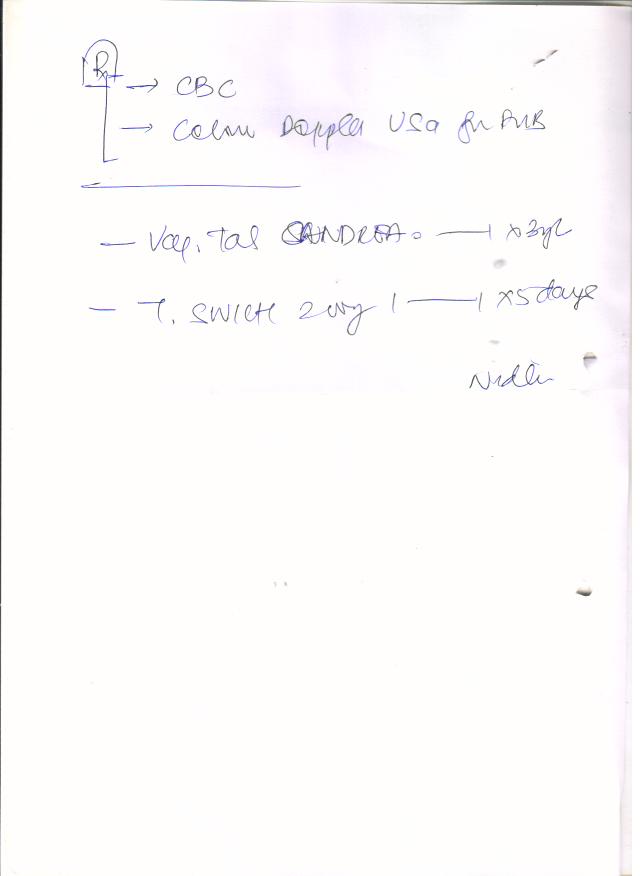 Rx
→ CBC
→ Colour Doppler USG for AUB
— Vag. Tab CANDREA 0 —— 1 x 3
— T. SWICH 200mg 1 —— 1 x 5 days